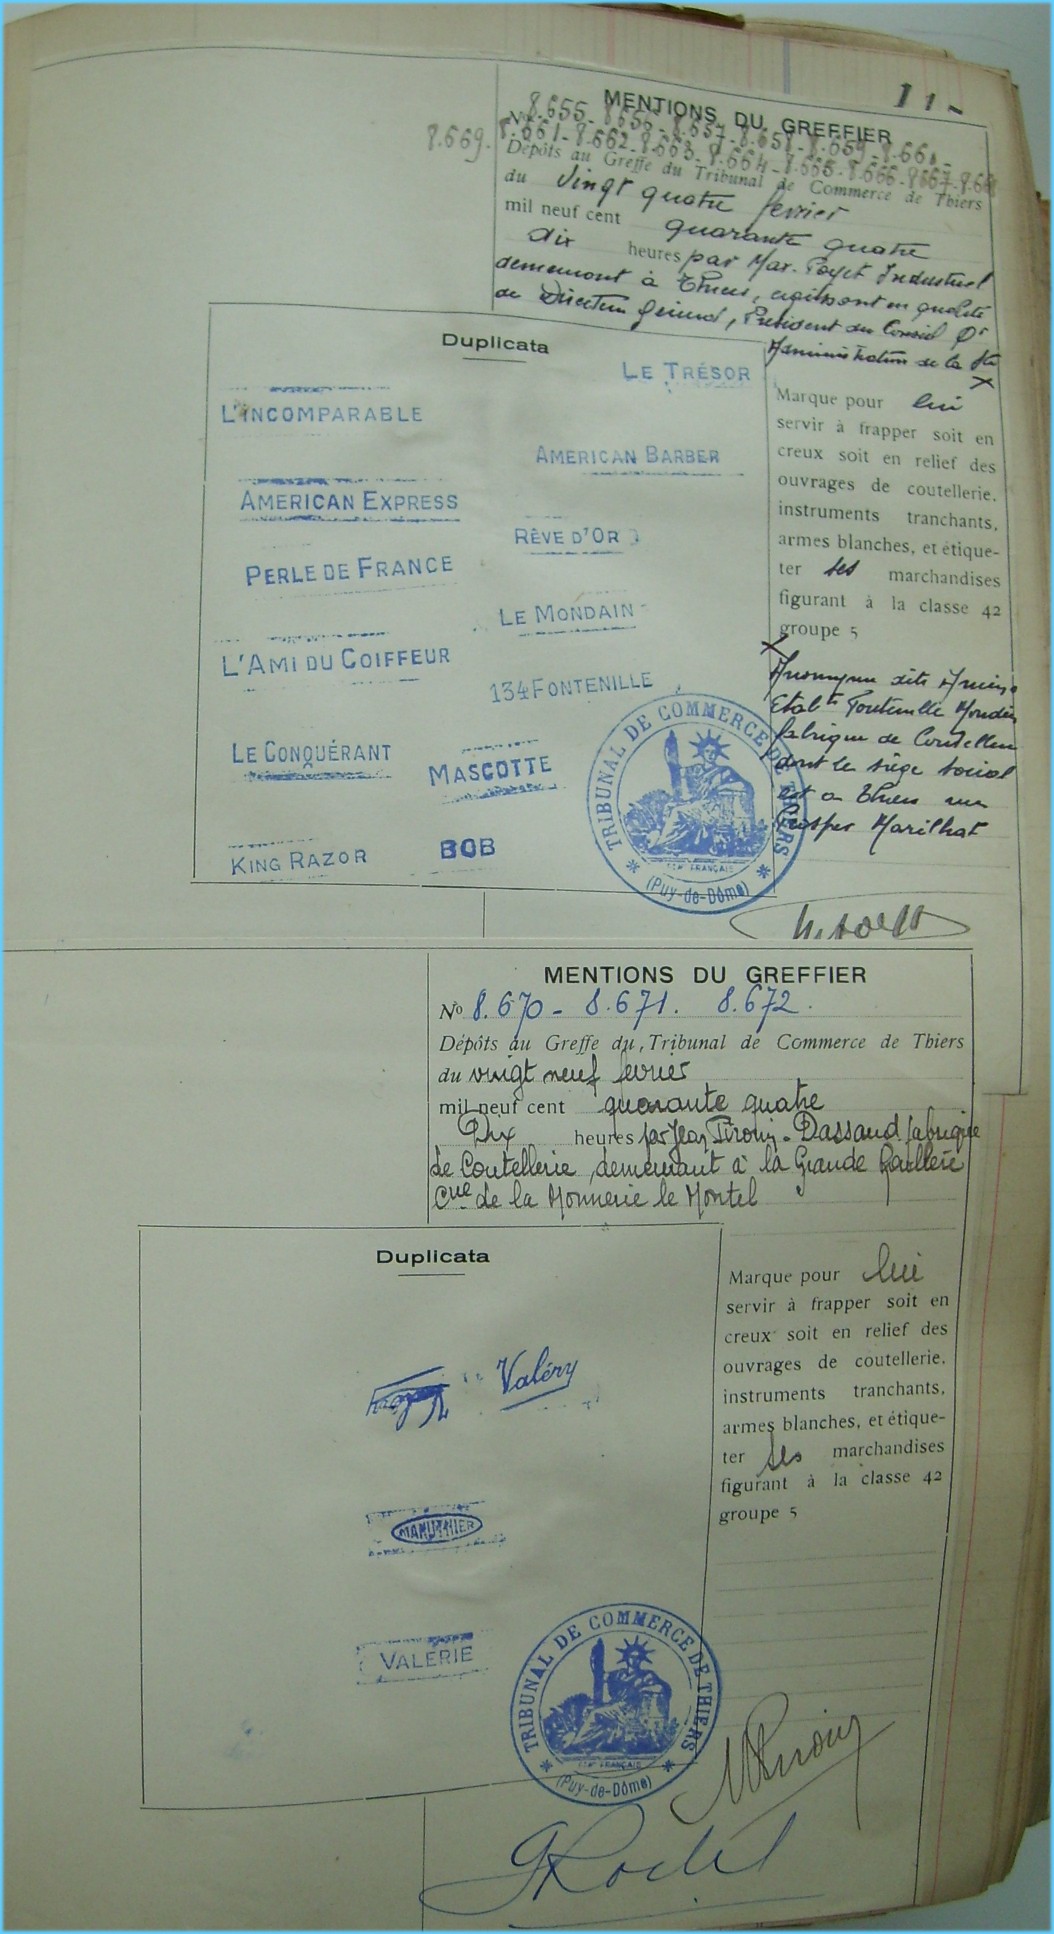 11-
MENTIONS DU GREFFIER
No 8.655 - 8656 - 8.657 - 8.658 - 8.659 - 8.660 -
8.669. 8.661 - 8.662 - 8.663 - 8.664 - 8.665 - 8.666 - 8667 - 8.668
Dépôts au Greffe du Tribunal de Commerce de Thiers
du vingt quatre fevrier
mil neuf cent quarante quatre
dix heures par Max. Poyet Industriel
demeurant à Thiers, agissant en qualité
de Directeur Général, Président du Conseil d'
Administration de la Sté
X
Duplicata
LE TRÉSOR
L'INCOMPARABLE
AMERICAN BARBER
AMERICAN EXPRESS
RÊVE D'OR
PERLE DE FRANCE
LE MONDAIN
L'AMI DU COIFFEUR
134 FONTENILLE
LE CONQUÉRANT
MASCOTTE
KING RAZOR
BOB
Marque pour lui
servir à frapper soit en
creux soit en relief des
ouvrages de coutellerie,
instruments tranchants,
armes blanches, et étique-
ter ses marchandises
figurant à la classe 42
groupe 5
X
Anonyme dite Anciens
Etabts Fontenille Mondière
fabrique de Coutellerie
dont le siège social
est a Thiers rue
Prosper Marilhat
TRIBUNAL DE COMMERCE DE THIERS
(Puy-de-Dôme)
MENTIONS DU GREFFIER
No 8.670 - 8.671. 8.672.
Dépôts au Greffe du Tribunal de Commerce de Thiers
du vingt neuf fevrier
mil neuf cent quarante quatre
Dix heures par Jean Pironin - Dassaud fabrique
de Coutellerie, demeurant à la Grande
Cne de la Monnerie le Montel
Duplicata
Valéry
MANUTHIER
VALERIE
Marque pour lui
servir à frapper soit en
creux soit en relief des
ouvrages de coutellerie,
instruments tranchants,
armes blanches, et étique-
ter ses marchandises
figurant à la classe 42
groupe 5
TRIBUNAL DE COMMERCE DE THIERS
(Puy-de-Dôme)